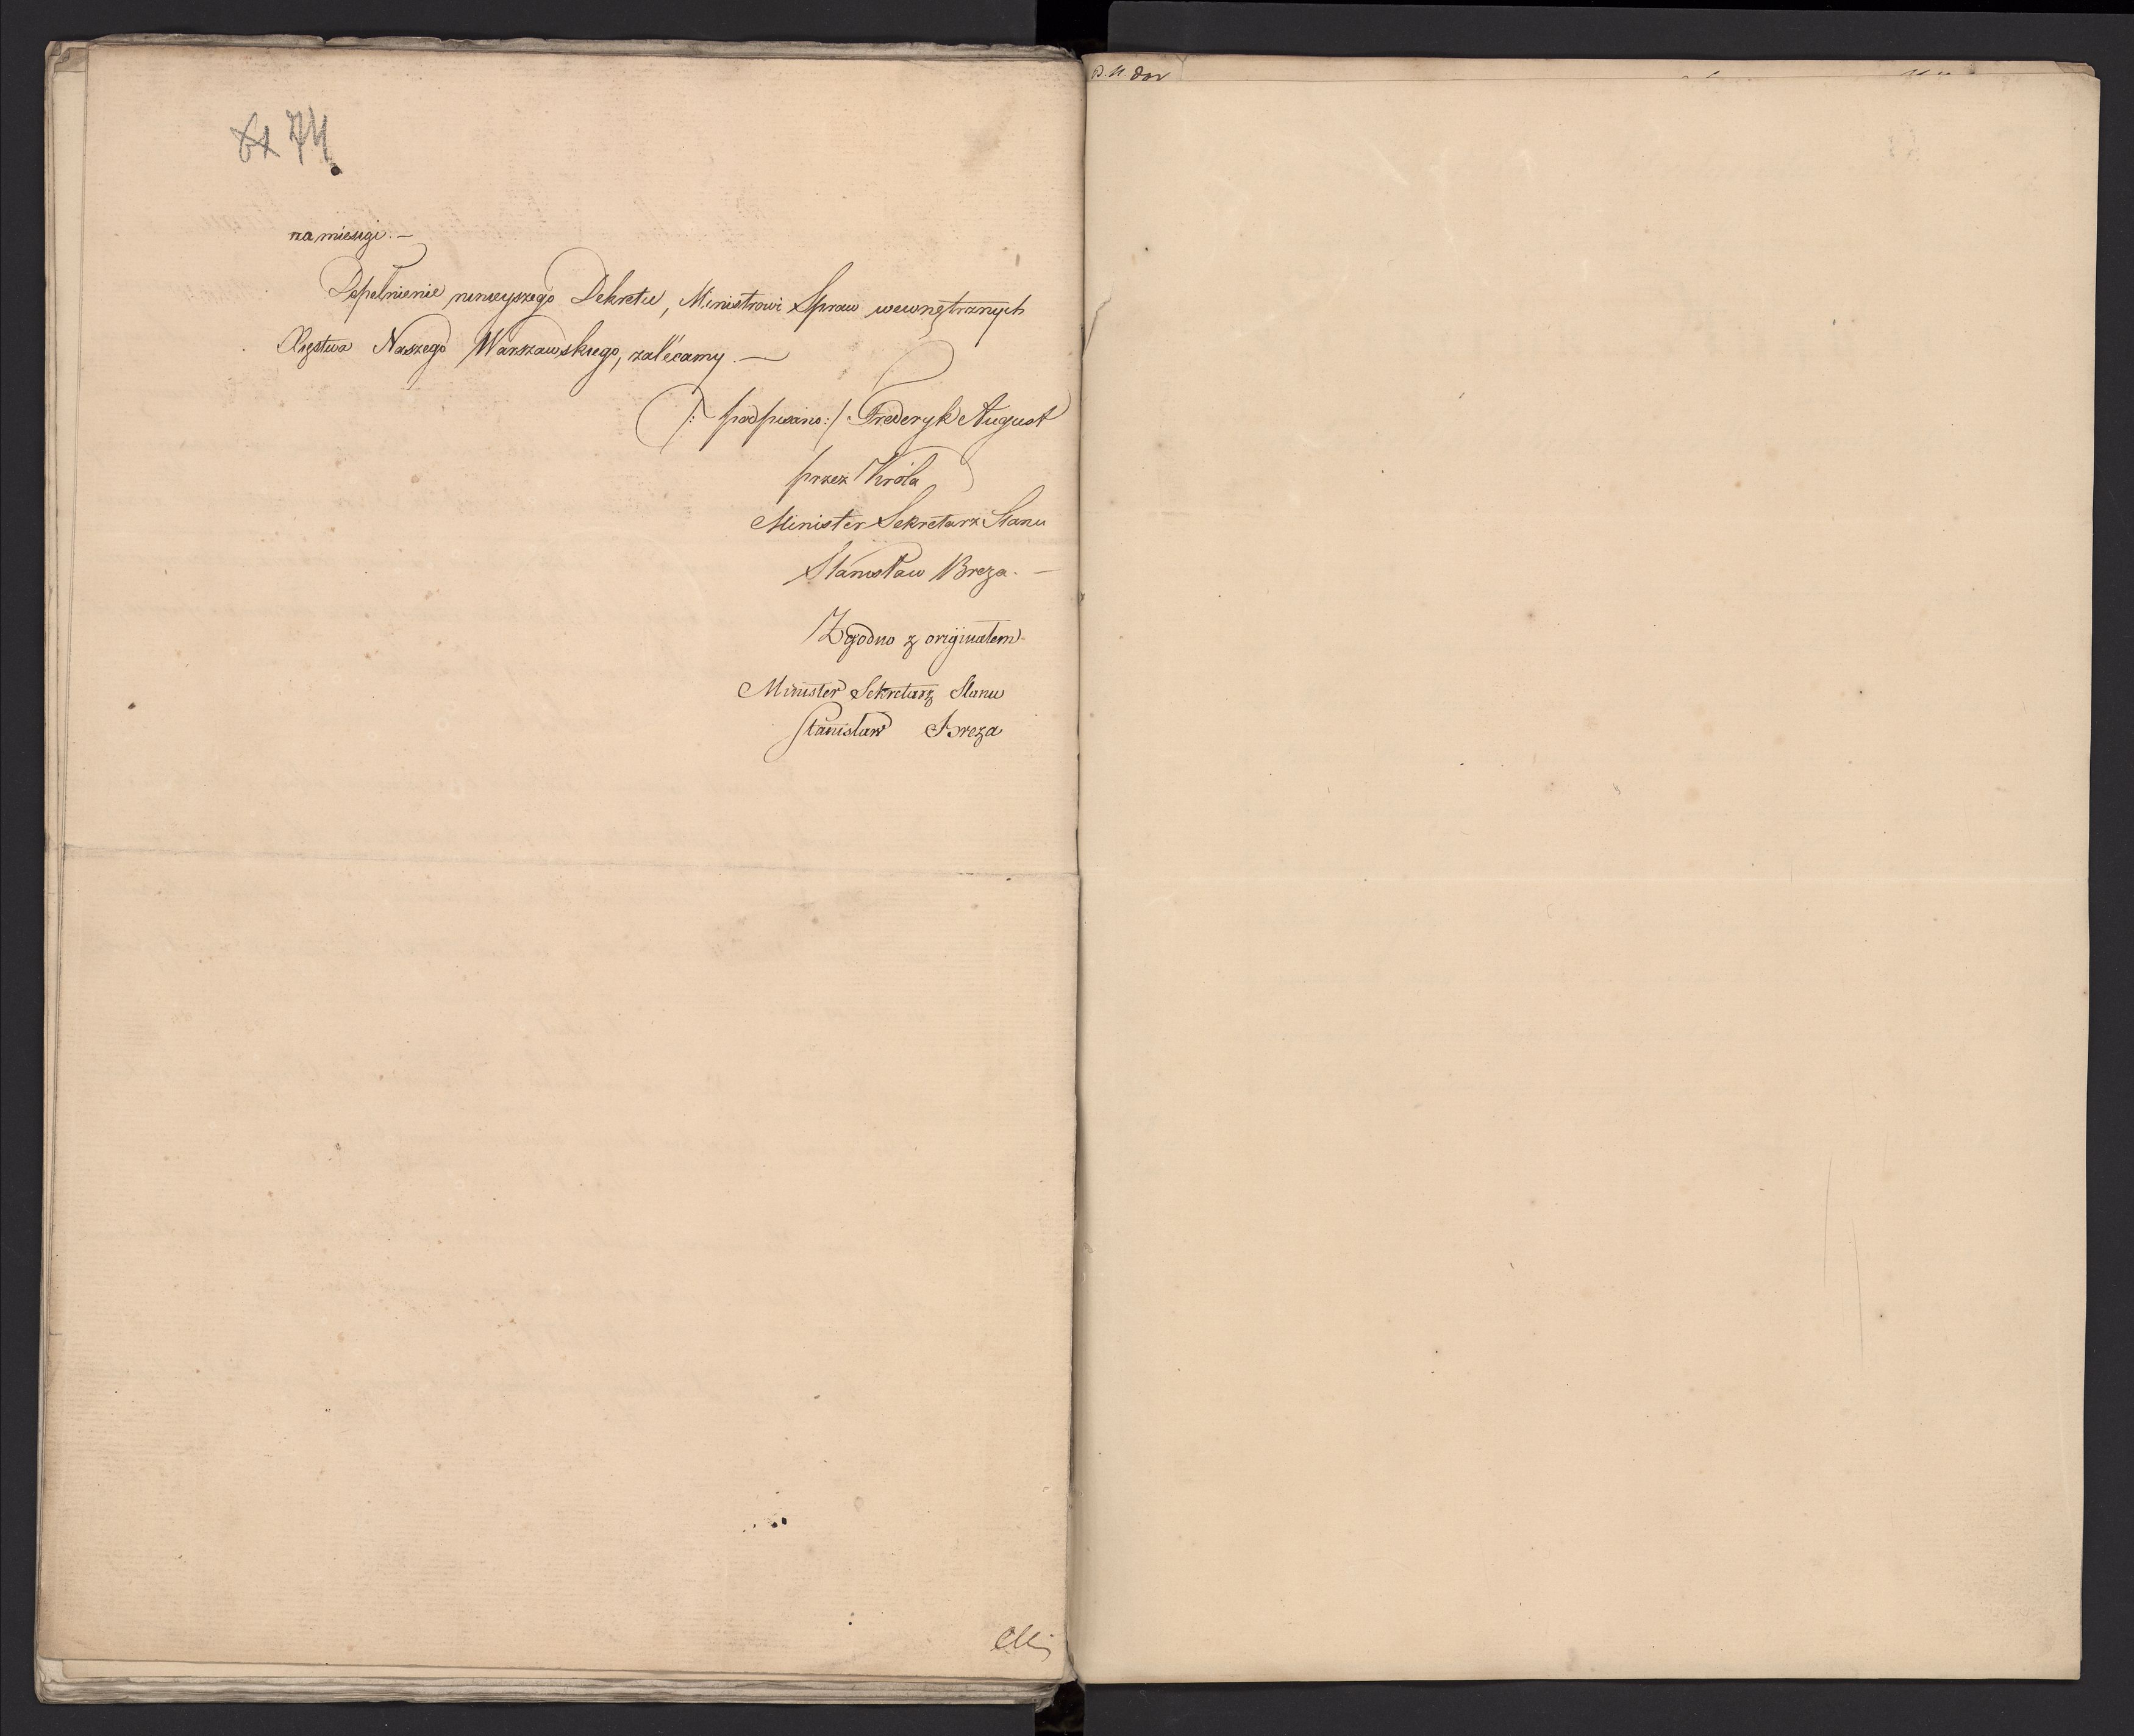 74
na miesięgi. —
Dopełnienie ninieyszego Dekretu, Ministrowi Spraw wewnętrznych
Xięstwa Naszego Warszawskiego, zalecamy. —
/: podpisano :/ Frederyk August
przez Króla
Minister Sekretarz Stanu
Stanisław Breza. —
Zgodno z oryginałem
Minister Sekretarz Stanu
Stanisław Breza